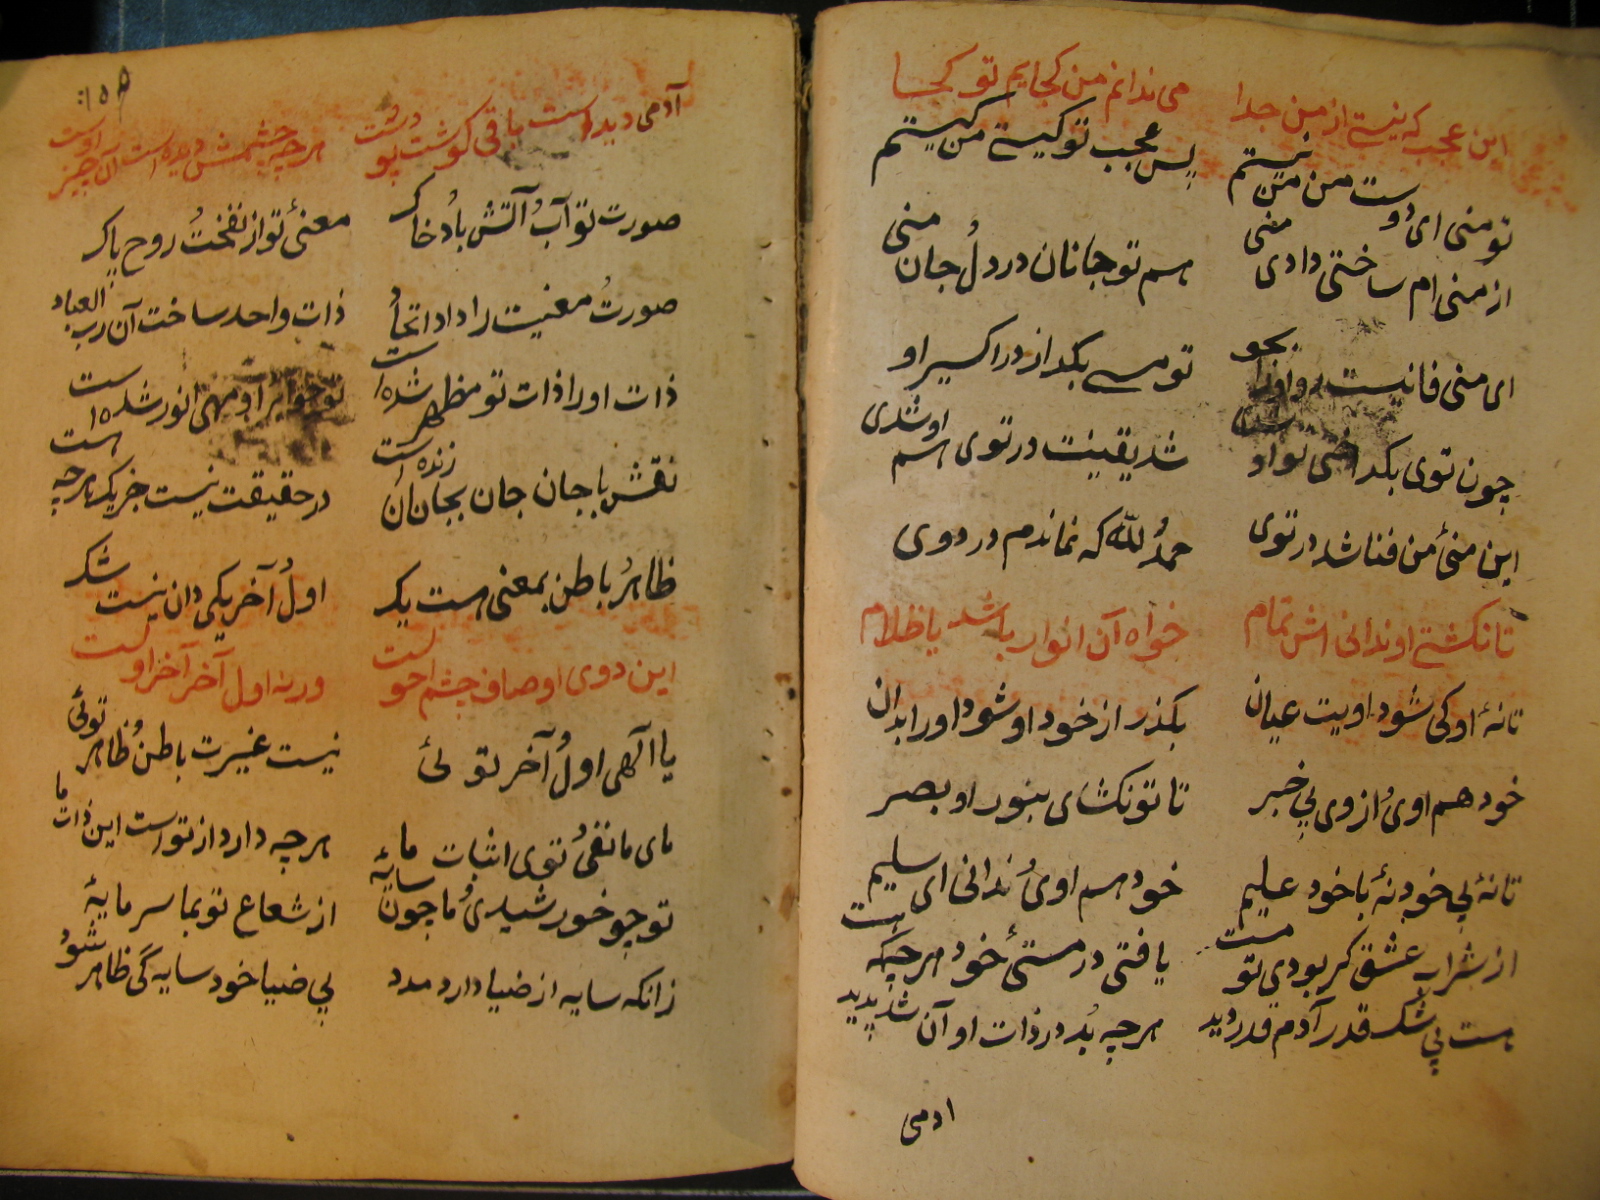 این عجب که نیستی از من جدا می ندانم من کجایم تو کجا
تو منی ای دوست من من نیستم پس عجب تو کیستی من کیستم
از منی ام ساختی دادی منی هم تو جانان در دل و جان منی
ای منی فانیست رو او را بجو تو مسی بگداز در اکسیر او
چون توی بگداختی تو او شدی شد یقینت در توی هم او شدی
این منئ من فنا شد در توی حمد لله که نماندم در دوی
تا نگشتی او ندانی اش تمام خواه آن انوار باشد یا ظلام
تا نهٔ او کی شود اویت عیان بگذر از خود او شو و او را بدان
خود هم اوی و از وی بی خبر تا تو نگشای بنور او بصر
تا نهٔ بی خود نهٔ با خود علیم خود هم اوی و ندانی ای سلیم
از شراب عشق گر بودی تو مست یافتی در مستئ خود هر چه هست
هست بی شک قدر آدم قدر دید هر چه بد در ذات او آن شد پدید
ادمی
آدمی دید است باقی گوشت و پوست هر چه چشمش دیده است آن چیز اوست
صورت تو آب و آتش باد و خاک معنئ تو از نفخت روح پاک
صورت و معنیت را داد اتحاد ذات واحد ساخت آن رب العباد
ذات او را ذات تو مظهر شده است تو چو او مهی انور شده است
نقش با جان جان بجانان زنده است در حقیقت نیست جز یک هر چه هست
ظاهر و باطن بمعنی هست یک اول و آخر یکی دان نیست شک
این دوی اوصاف چشم احولست ورنه اول آخر آخر اولست
یا آلهی اول و آخر توئی نیست غیرت باطن و ظاهر توئی
مای ما نفی و توی اثبات ما هر چه دارد از تو است این ذات ما
تو چو خورشیدی و ما چون سایهٔ از شعاع تو بما سرمایهٔ
زانکه سایه از ضیا دارد مدد بی ضیا خود سایه کی ظاهر شود